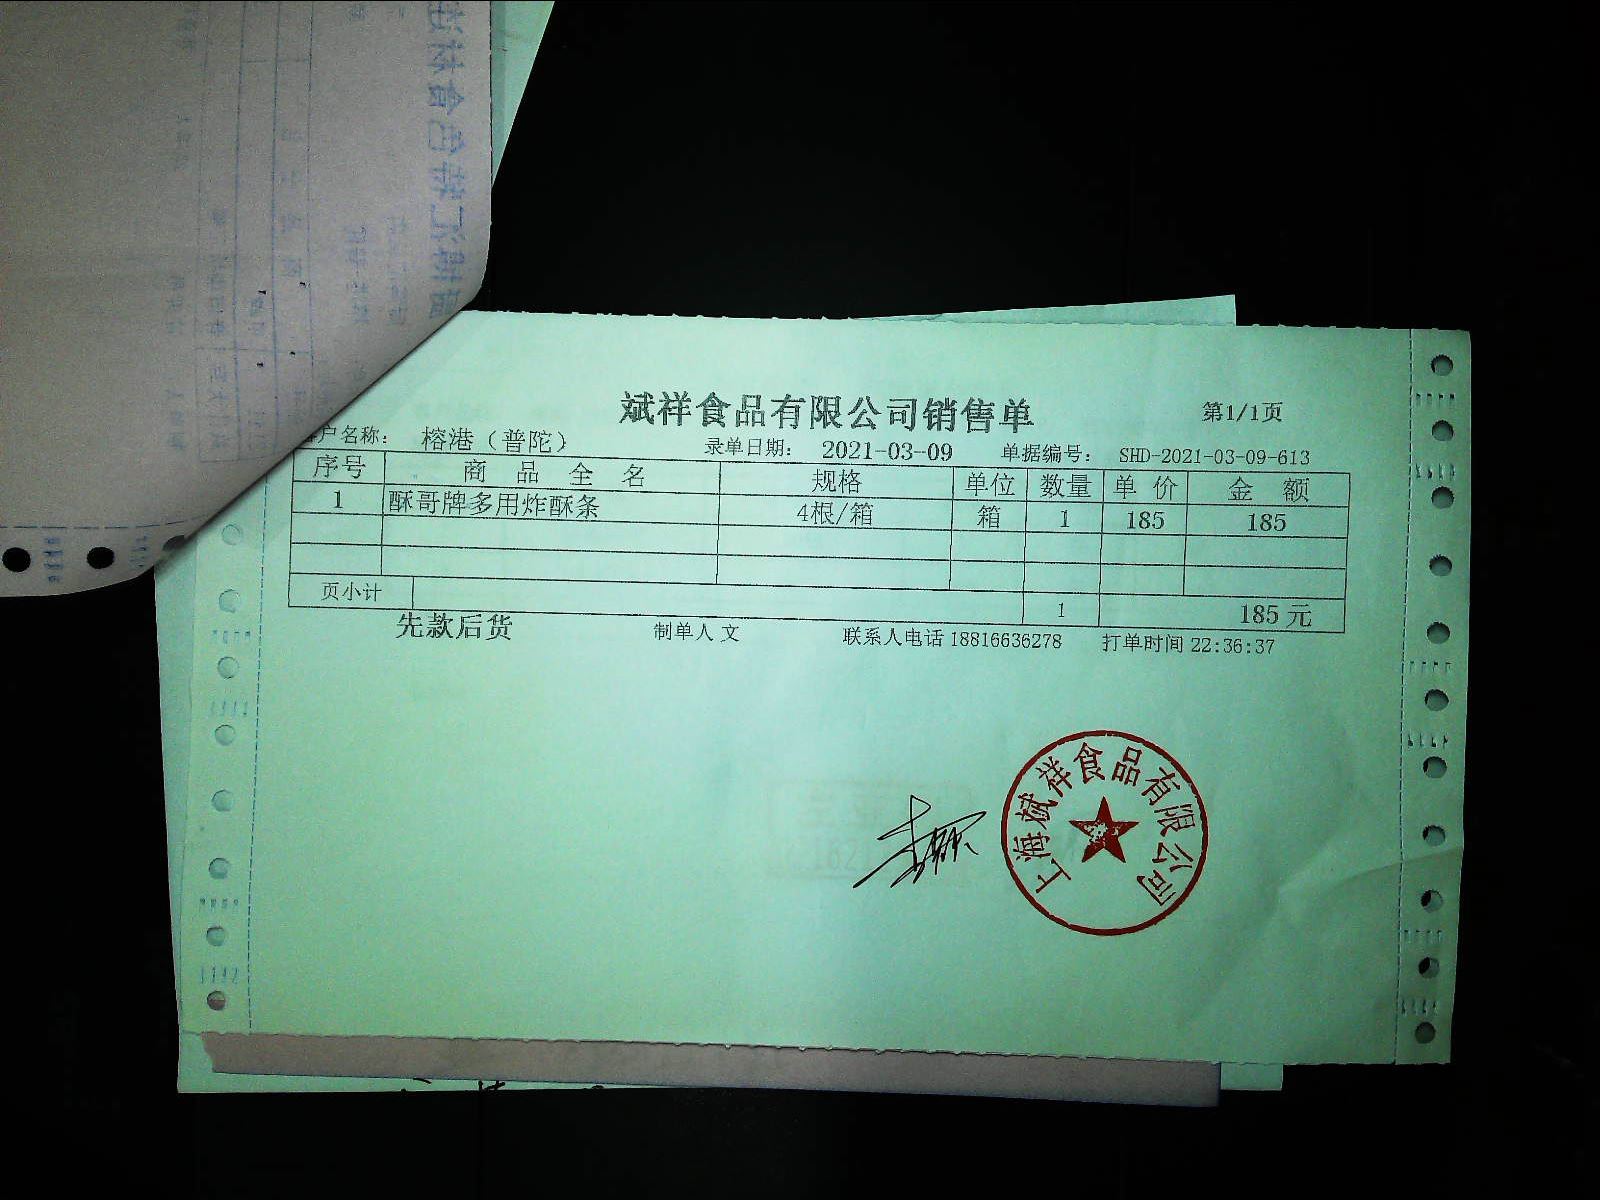 斌祥食品有限公司销售单
第1/1页
客户名称： 榕港（普陀） 录单日期： 2021-03-09 单据编号： SHD-2021-03-09-613
序号 商品全名 规格 单位 数量 单价 金额
1 酥哥牌多用炸酥条 4根/箱 箱 1 185 185
页小计 1 185元
先款后货 制单人 文 联系人电话 18816636278 打单时间 22:36:37
上海斌祥食品有限公司